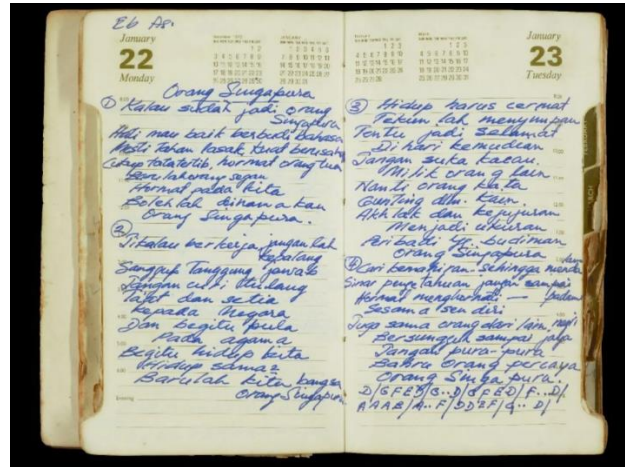 Eb As.
January
22
Monday
Orang Singapura
① Kalau sudah jadi orang
Singapura
Hati mau baik berbudi bahasa
Mesti tahan lasak, kuat berusaha
Cukup tatatertib, hormat orang tua
Barulah orang segan
Hormat pada kita
Bolehlah dinamakan
Orang Singapura.
②
Jikalau berkerja, jangan lah
kepalang
Sanggup Tanggung jawab
Jangan curi tulang
Ta'at dan setia
Kepada Negara
Dan begitu pula
Pada agama
Begitu hidup kita
Hidup sama2
Barulah kita bangsa
Orang Singapura
Evening
January
23
Tuesday
③ Hidup harus cermat
Tekun lah menyimpan
Tentu jadi selamat
Di hari kemudian
Jangan suka kacau.
Milik orang lain
Nanti orang kata
Gunting dlm. Kain.
Akhlak dan kejujuran
Menjadi ukuran
Peribadi yg. budiman
Orang Singapura
Cari kemahiran sehingga menda
lam
Sinar pengetahuan jangan sampai
padam
Hormat menghormati —
Sesama sendiri
Juga sama orang dari lain, negri
Bersungguh sampai jaya
Jangan pura-pura
Baharu orang percaya
Orang Singapura.